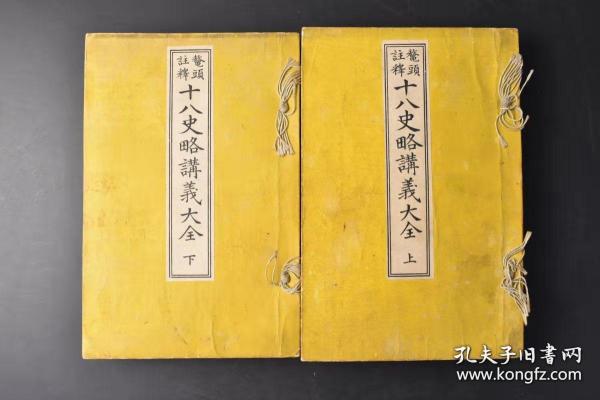 鼇頭
註釋
十八史略講義大全
下
鼇頭
註釋
十八史略講義大全
上
孔夫子旧书网
www.kongfz.com